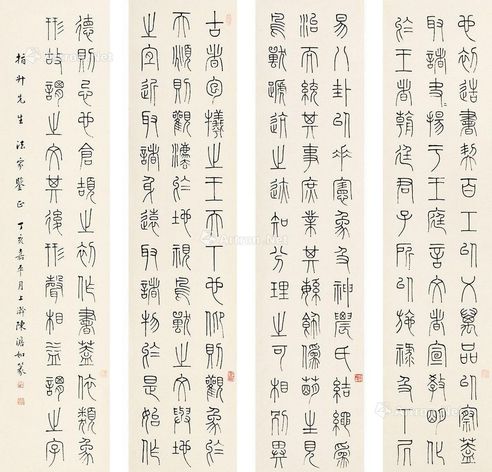 古者包犧之王天下也仰則觀象於
天頫則觀灋於地視鳥獸之文與地
之宜近取諸身遠取諸物於是始作
易八卦以垂憲象及神農氏結繩為
治而統其事庶業其繇飾偽萌生見
鳥獸蹏迒之迹知分理之可相別異
也初造書契百工以乂萬品以察蓋
取諸夬揚于王庭言文者宣教明化
於王者朝廷君子所以施祿及下居
德則忌也倉頡之初作書蓋依類象
形故謂之文其後形聲相益謂之字
升先生法家鑒正 丁亥嘉平月上澣陳澹如篆